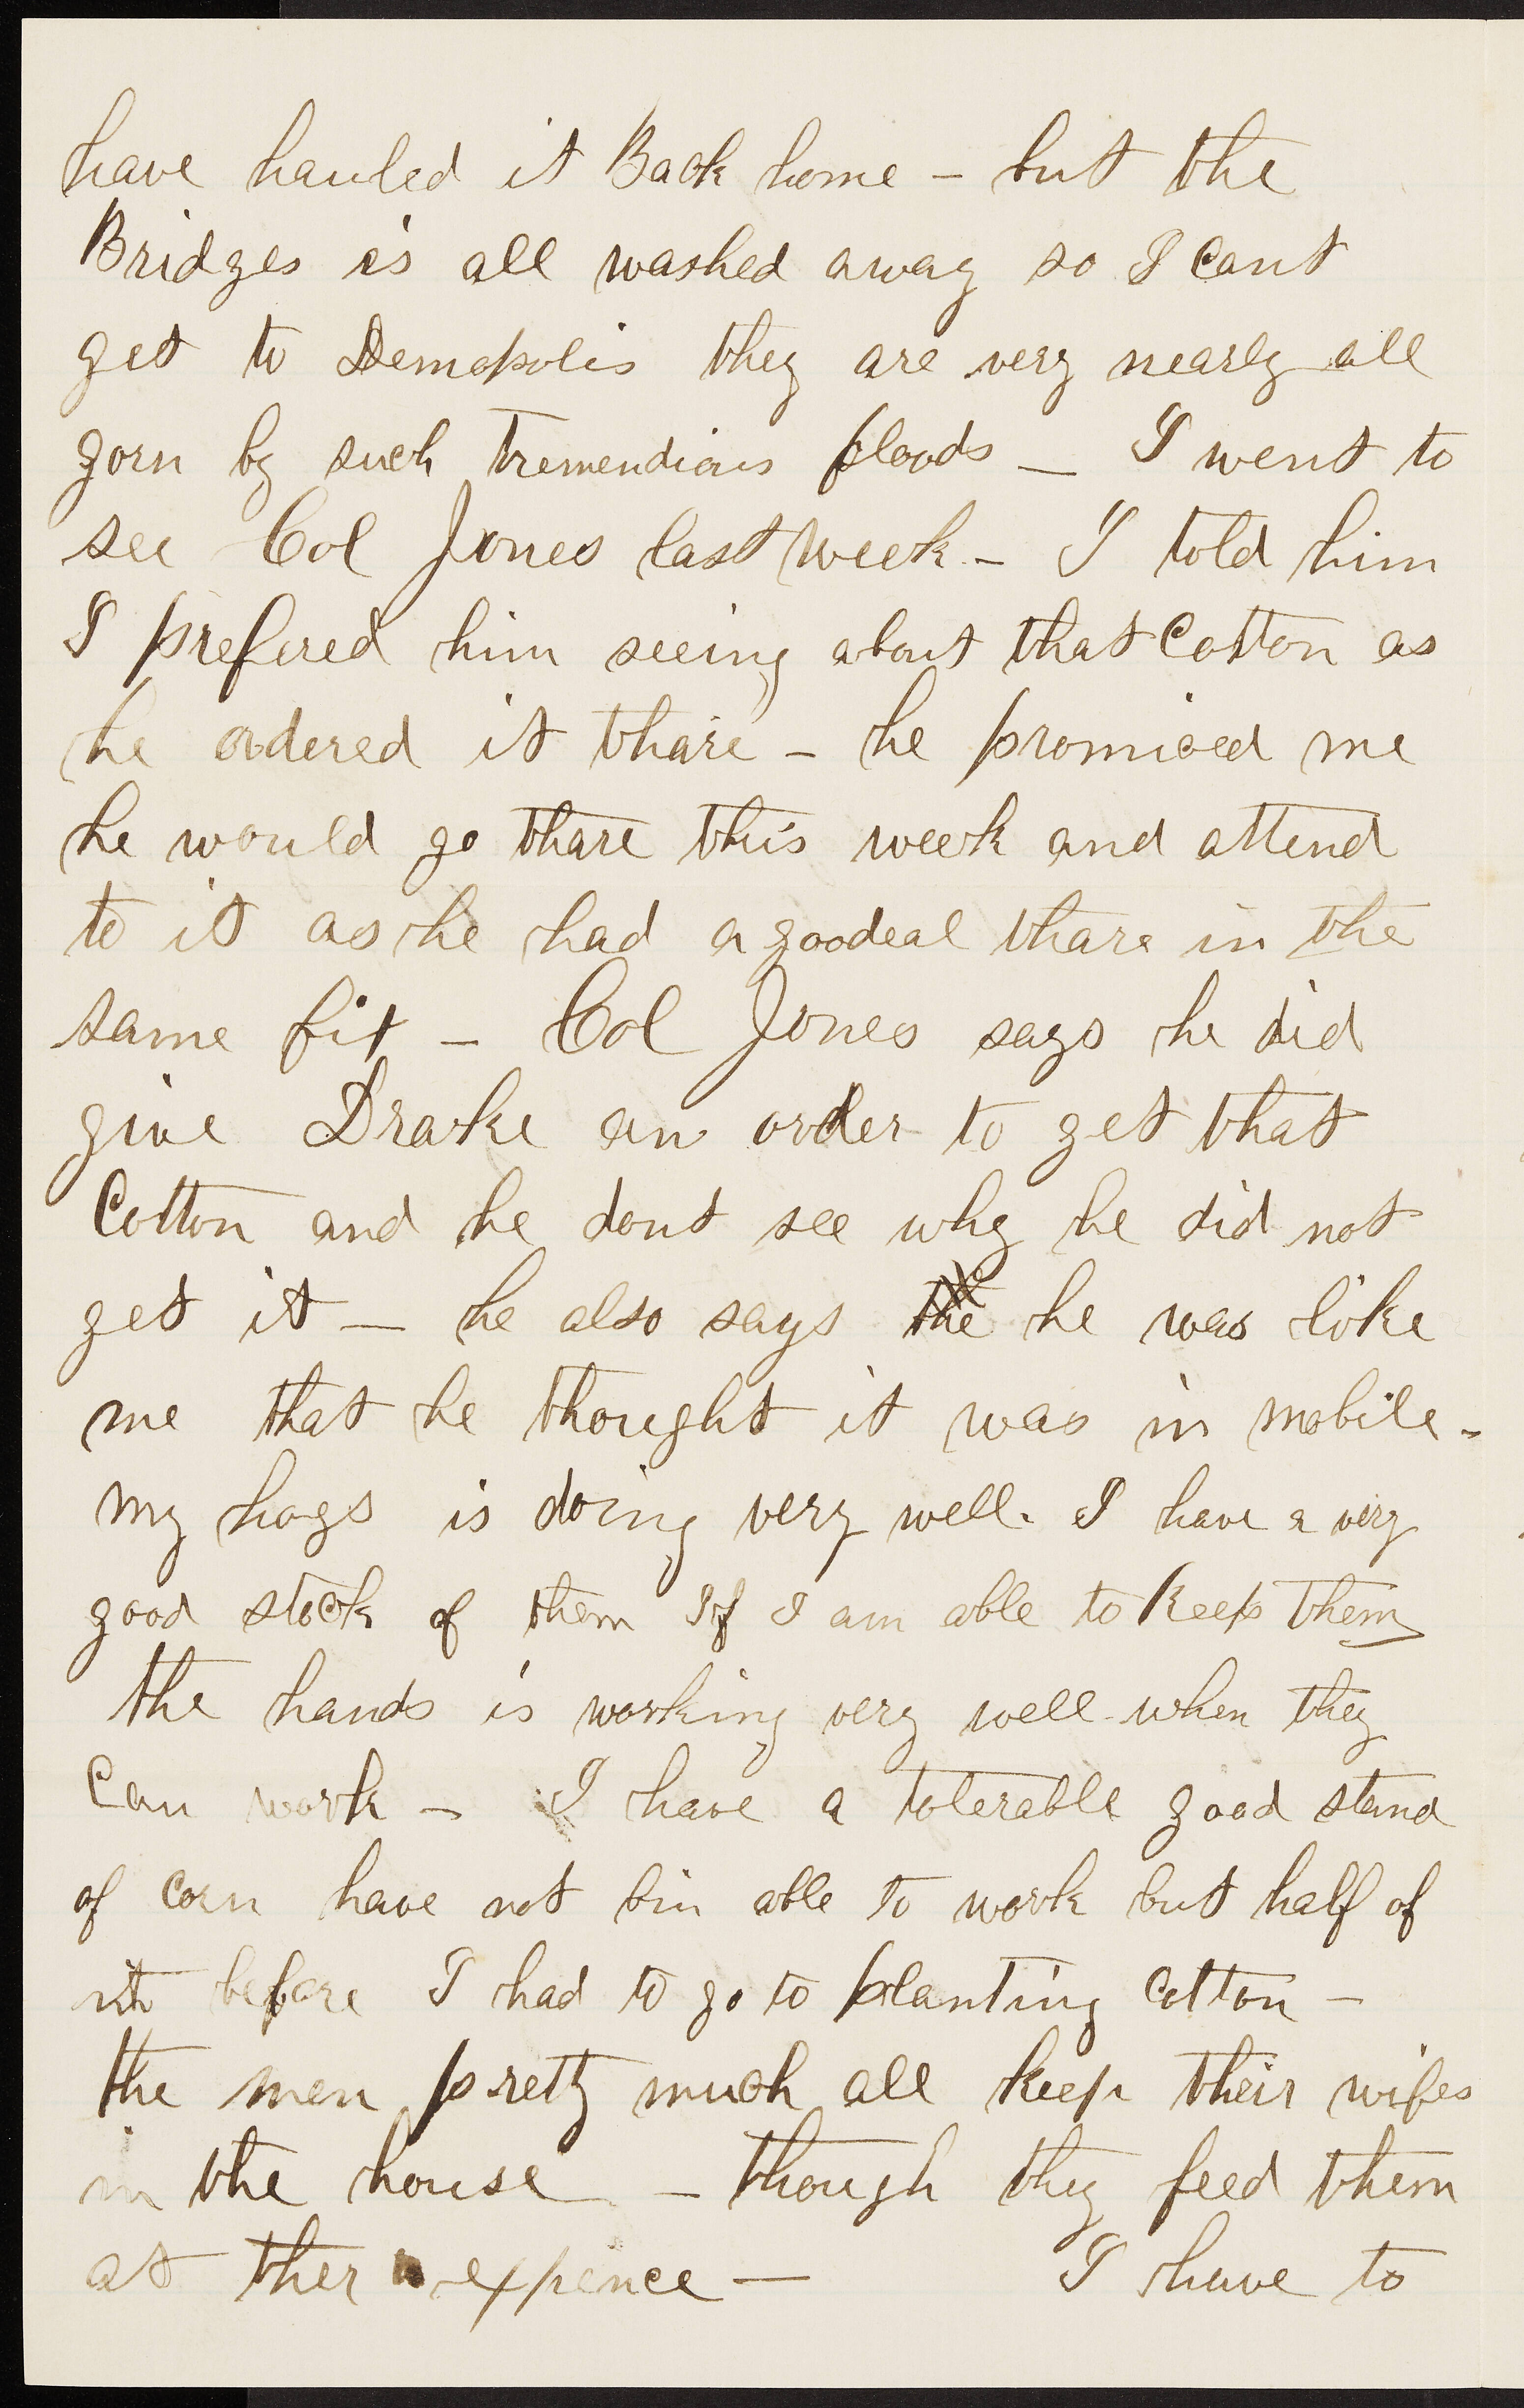 have hauled it Back home – but the
Bridges is all washed away so I Cant
get to Demopolis they are very nearly all
gorn by such tremendious floods – I went to
see Col Jones last week – I told him
I prefered him seeing about that Cotton as
he ordered it thare – he promiced me
he would go thare this week and attend
to it as he had a goodeal thare in the
same fix – Col Jones says he did
give Drake an order to get that
Cotton and he dont see why he did not
get it – he also says the he was like
me that he thought it was in mobile –
my hogs is doing very well. I have a very
good stock of them If I am able to Keep them
the hands is working very well when they
Can work – I have a tolerable good stand
of corn have not bin able to work but half of
it before I had to go to planting Cotton –
the men pretty much all keep their wifes
in the house – though they feed them
at ther expence – I have to